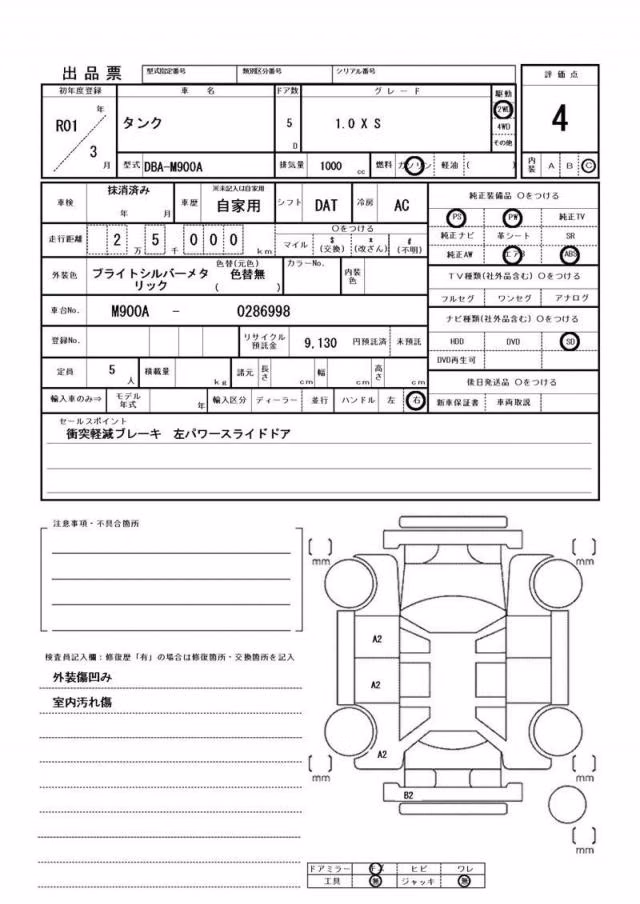 出品票 型式指定番号 類別区分番号 シリアル番号
評価点
初年度登録 車名 ドア数 グレード 駆動
R01 年 タンク 5 D 1.0 X S 2WD
3 月 4WD
その他
4
型式 DBA-M900A 排気量 1000 cc 燃料 ガソリン 軽油 ( )
内装 A B C
車検 抹消済み 年 月 車歴 ※未記入は自家用 自家用 シフト DAT 冷房 AC
純正装備品 〇をつける
PS PW 純正TV
純正ナビ 革シート SR
純正AW エアB ABS
走行距離 2 万 5 千 0 0 0 km 〇をつける
マイル $ (交換) x (改ざん) # (不明)
外装色 ブライトシルバーメタリック 色替(元色) 色替無 ( ) カラーNo. 内装色
TV種類(社外品含む) 〇をつける
フルセグ ワンセグ アナログ
車台No. M900A - 0286998
ナビ種類(社外品含む) 〇をつける
HDD DVD SD
DVD再生可
登録No. リサイクル預託金 9,130 円預託済 未預託
定員 5 人 積載量 kg 諸元 長さ cm 幅 cm 高さ cm
後日発送品 〇をつける
新車保証書 車両取説
輸入車のみ⇒ モデル年式 年 輸入区分 ディーラー 並行 ハンドル 左 右
セールスポイント
衝突軽減ブレーキ 左パワースライドドア
注意事項・不具合箇所
検査員記入欄:修復歴「有」の場合は修復箇所・交換箇所を記入
外装傷凹み
室内汚れ傷
[ ] mm [ ] mm
A2
A2
A2
[ ] mm [ ] mm
B2
[ ] mm
ドアミラー キズ ヒビ ワレ
工具 無 ジャッキ 無